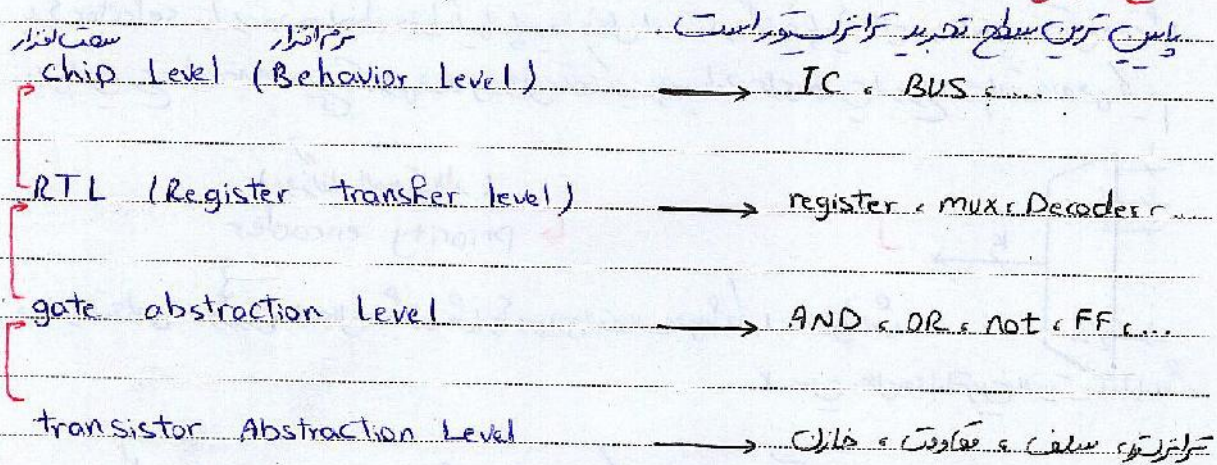 پایین ترین سطح تجرید ترانزیستور است.
سخت افزار نرم افزار
chip Level (Behavior Level) → IC ، BUS ، ...
RTL (Register transfer level) → register ، mux ، Decoder ، ...
gate abstraction Level → AND ، OR ، not ، FF ، ...
transistor Abstraction Level → ترانزیستور، سلف ، مقاومت ، خازن